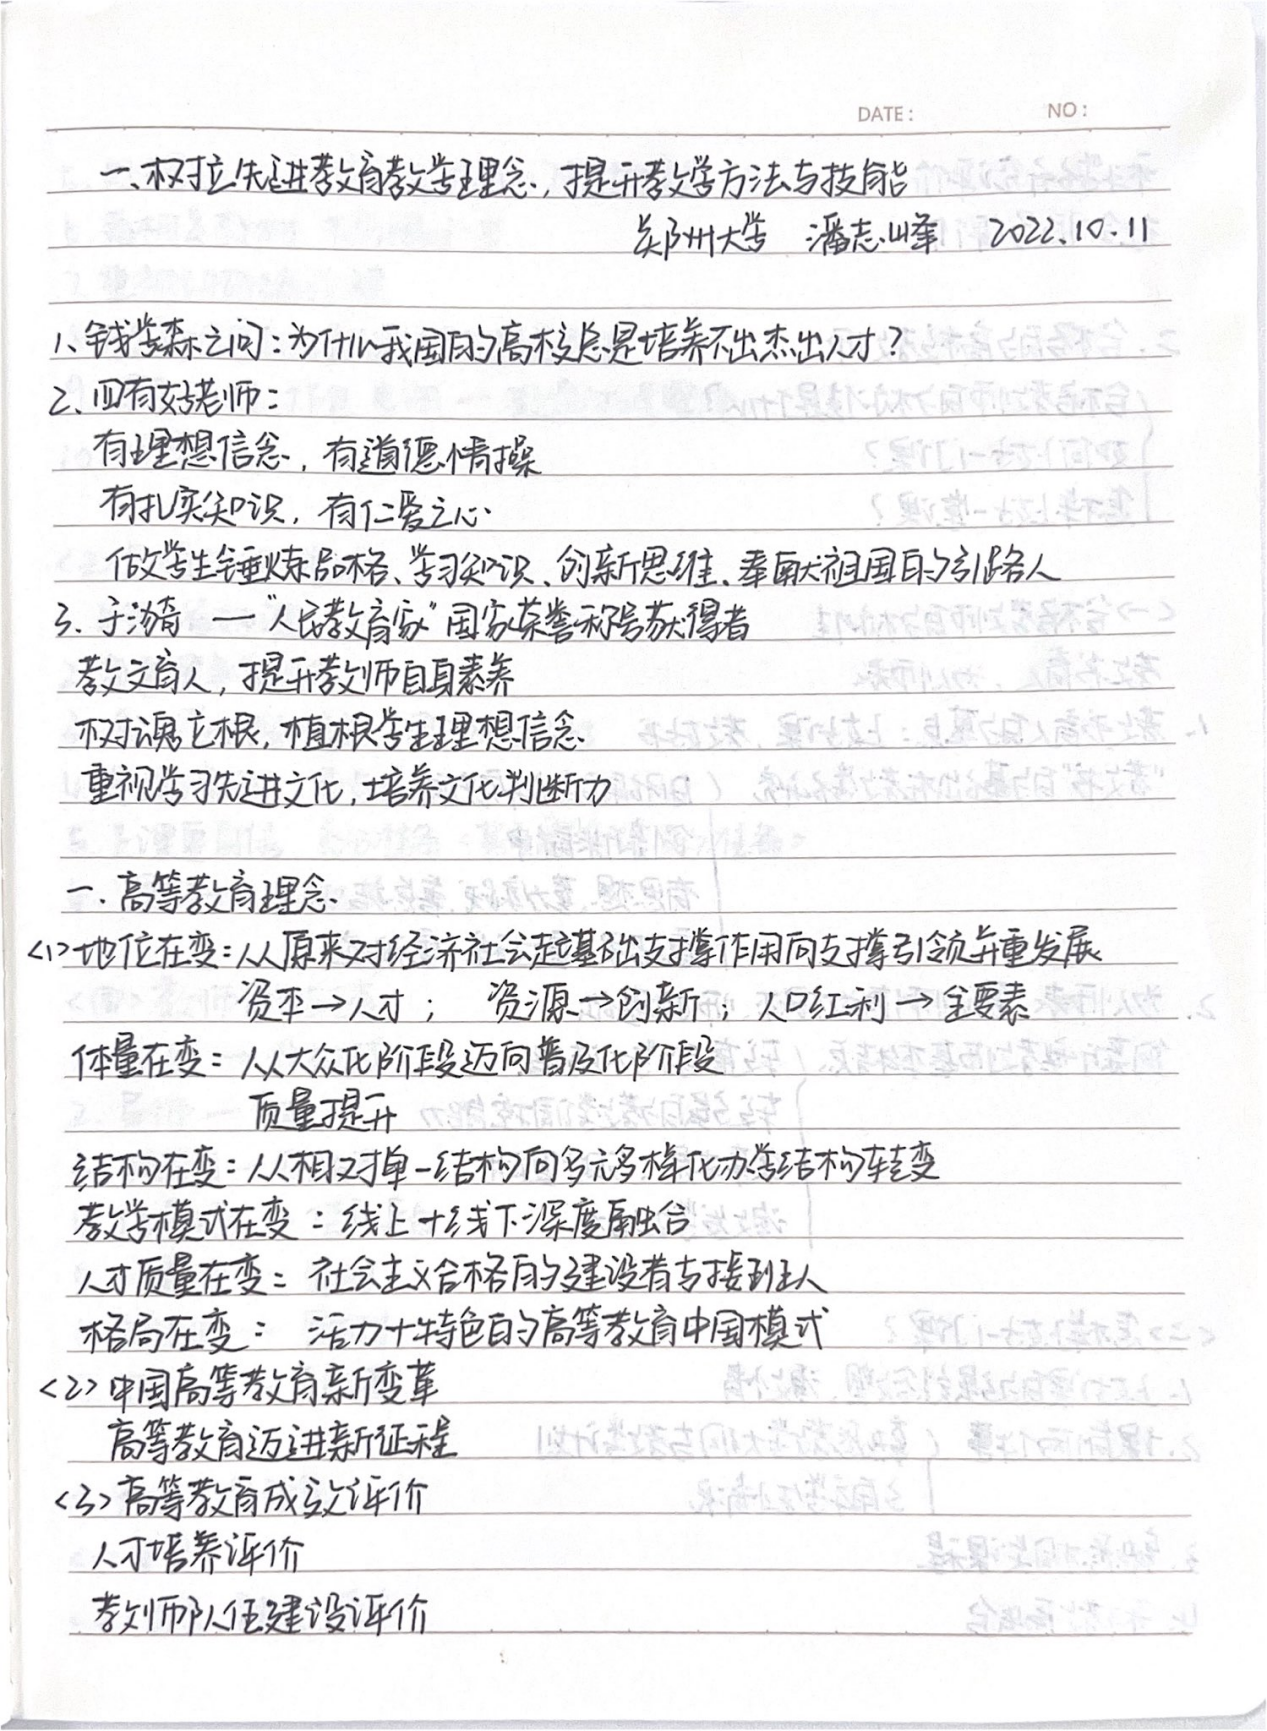 DATE: NO:
一、树立先进教育教学理念，提升教学方法与技能
郑州大学 潘志峰 2022.10.11
1、钱学森之问：为什么我国的高校总是培养不出杰出人才？
2、四有好老师：
有理想信念，有道德情操
有扎实知识，有仁爱之心
做学生锤炼品格、学习知识、创新思维、奉献祖国的引路人
3、于漪 —"人民教育家"国家荣誉称号获得者
教文育人，提升教师自身素养
树魂立根，植根学生理想信念
重视学习先进文化，培养文化判断力
一、高等教育理念
<1>地位在变：从原来对经济社会起基础支撑作用向支撑引领并重发展
资本→人才； 资源→创新； 人口红利→全要素
体量在变：从大众化阶段迈向普及化阶段
质量提升
结构在变：从相对单一结构向多元多样化办学结构转变
教学模式在变：线上+线下深度融合
人才质量在变：社会主义合格的建设者与接班人
格局在变： 活力+特色的高等教育中国模式
<2>中国高等教育新变革
高等教育迈进新征程
<3>高等教育成效评价
人才培养评价
教师队伍建设评价